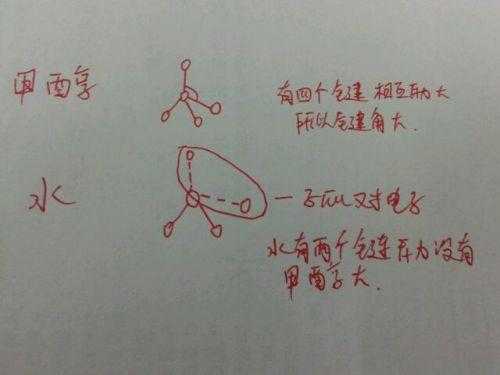 甲醇
有四个化键 相互斥力大
所以化键角大.
水
一 孤对电子
水有两个化键 斥力没有
甲醇大.